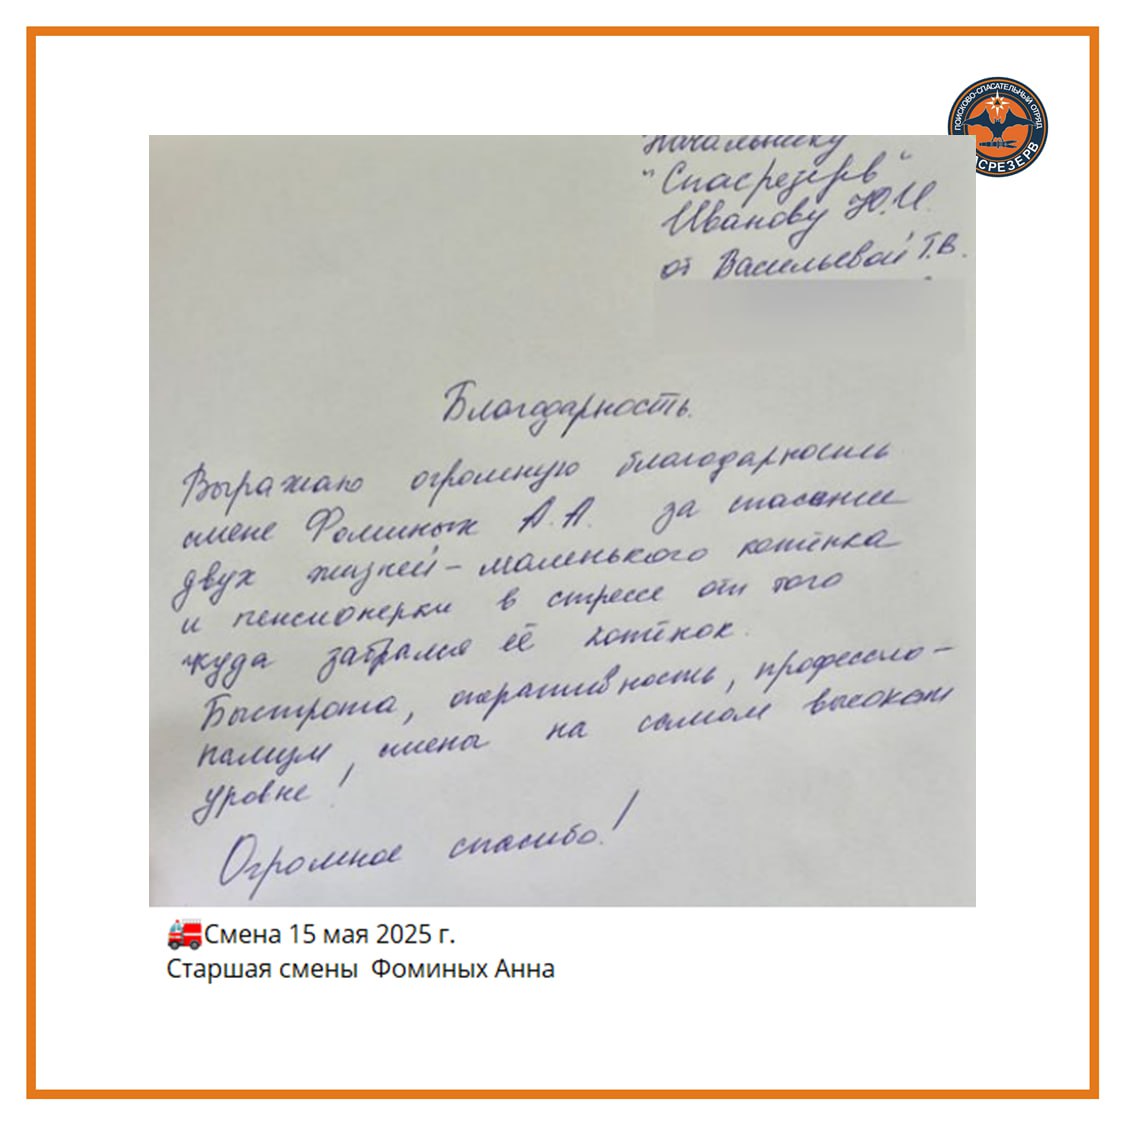 ПОИСКОВО-СПАСАТЕЛЬНЫЙ ОТРЯД
СРЕЗЕРВ
Начальнику
"Спасрезерв"
Иванову Ю.И.
от Васильевой Т.В.
Благодарность.
Выражаю огромную благодарность
смене Фоминых А.А. за спасение
двух жизней – маленького котёнка
и пенсионерки в стрессе от того
куда забрался её котёнок.
Быстрота, оперативность, профессио-
нализм, смены на самом высоком
уровне!
Огромное спасибо!
Смена 15 мая 2025 г.
Старшая смены Фоминых Анна